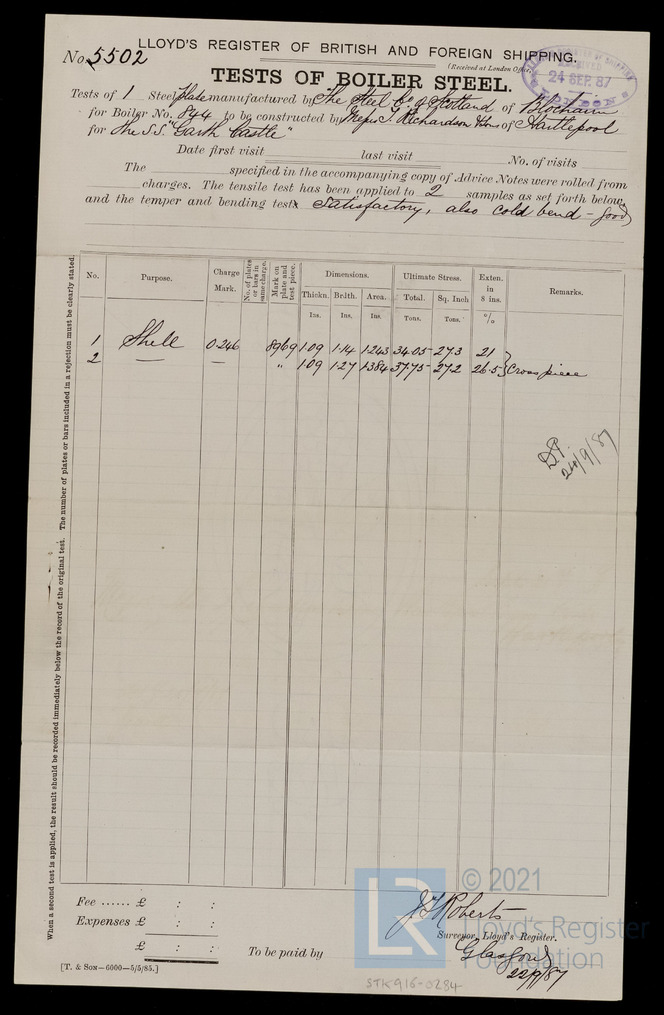 LLOYD'S REGISTER OF BRITISH AND FOREIGN SHIPPING.
No. 5502
(Received at London Office
24 SEP. 87
TESTS OF BOILER STEEL.
Tests of 1 Steel plate manufactured by The Steel Co. of Scotland of Blochairn
for Boiler No. 844 to be constructed by Messrs T. Richardson & Sons of Hartlepool
for the S.S. "Garth Castle"
Date first visit last visit No. of visits
The specified in the accompanying copy of Advice Notes were rolled from
charges. The tensile test has been applied to 2 samples as set forth below,
and the temper and bending tests Satisfactory, also cold bend - good
No. Purpose. Charge Mark. No. of plates or bars in same charge. Mark on plate and test piece. Dimensions. Ultimate Stress. Exten. in 8 ins. Remarks.
Thickn. Brdth. Area. Total. Sq. Inch
Ins. Ins. Ins. Tons. Tons. %
1 Shell 0.246 8969 1.09 1.14 1.243 34.05 27.3 21
2 — — " 1.09 1.27 1.384 37.75 27.2 26.5 } Cross piece
24/9/87
When a second test is applied, the result should be recorded immediately below the record of the original test. The number of plates or bars included in a rejection must be clearly stated.
Fee ...... £ : :
Expenses £ : :
£ : :
To be paid by
J T Roberts
Surveyor, Lloyd's Register.
Glasgow
22/9/87
[T. & SON—6000—5/5/85.]
STK916-0284
LR
© 2021
Lloyd's Register
Foundation